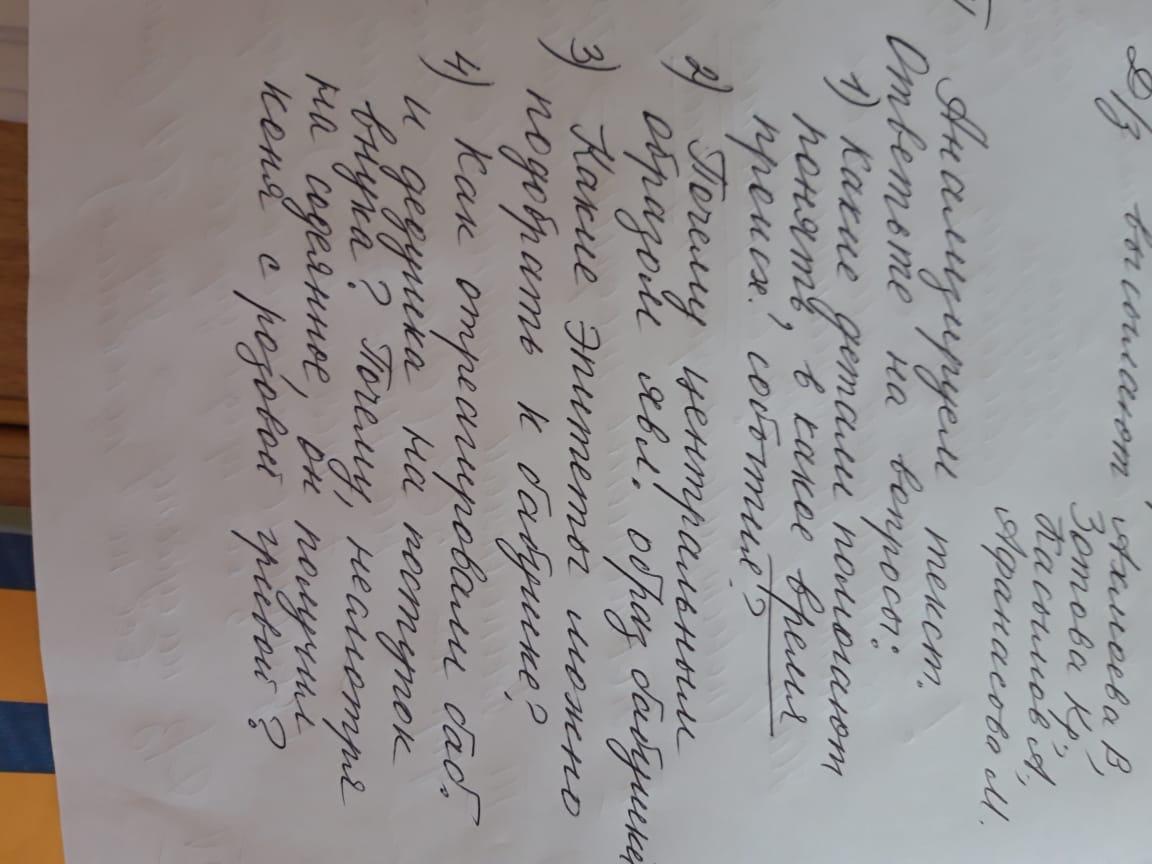 Д/з высылают Ахмоева В,
Зотова К,
Басылов А,
Афанасова М.
Анализируем текст.
Ответьте на вопросы:
1) Какие детали помогают
понять, в какое время
происх. событие?
2) Почему центральным
образом явл. образ бабушки
3) Какие эпитеты можно
подобрать к бабушке?
4) Как отреагировали баб.
и дедушка на поступок
внука? Почему, несмотря
на содеянное, он получил
коня с розовой гривой?